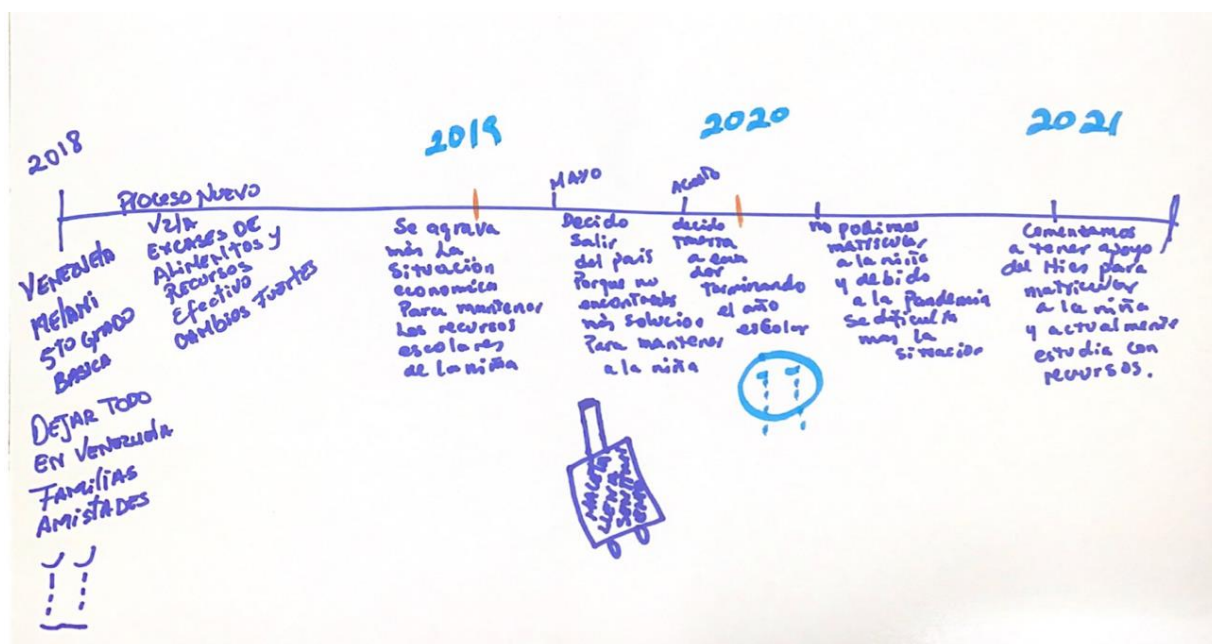 2018
VENEZUELA
MELANI
5TO GRADO
BASICA
DEJAR TODO
EN VENEZUELA
FAMILIAS
AMISTADES
PROCESO NUEVO
VZLA
EXCASES DE
ALIMENTOS Y
RECURSOS
EFECTIVO
CAMBIOS FUERTES
2019
Se agrava
más la
Situación
economica
Para mantener
Los recursos
escolares
de la niña
MAYO
Decido
Salir
del país
Porque no
encontraba
más solucion
Para mantener
a la niña
MALETA
LLENA
AGOSTO
decido
traerla
a ecua
dor
Terminando
el año
escolar
2020
no podimos
matricular
a la niña
y debido
a la Pandemia
Se dificulto
mas la
situacion
2021
Comentamos
a tener apoyo
del Mies para
matricular
a la niña
y actualmente
estudia con
recursos.